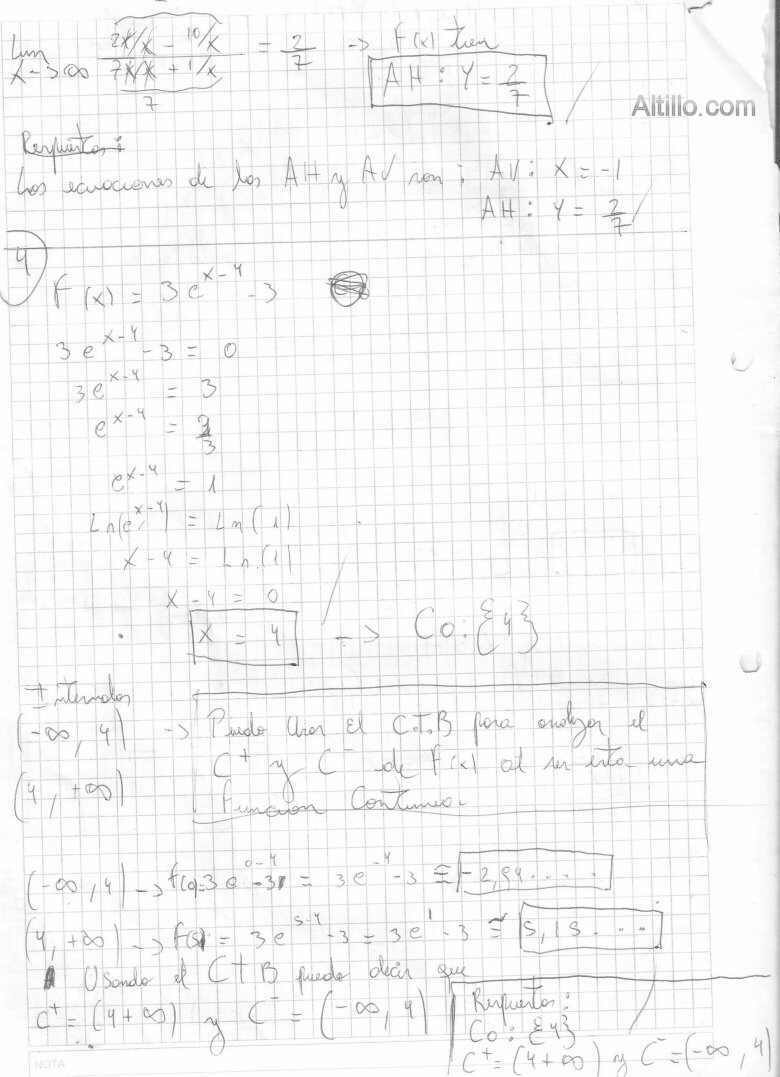 Lim x→∞ (2x/x - 10/x) / (7x/x + 1/x) = 2/7 → F(x) tien
7
AH: Y = 2/7
Altillo.com
Respuestas:
Las ecuaciones de las AH y AV son: AV: X = -1
AH: Y = 2/7
4
F(x) = 3e^(x-4) - 3
3e^(x-4) - 3 = 0
3e^(x-4) = 3
e^(x-4) = 3/3
e^(x-4) = 1
Ln(e^(x-4)) = Ln(1)
x - 4 = Ln(1)
x - 4 = 0
X = 4 → Co: {4}
Intervalos
(-∞, 4) → Puedo Usar El C.T.B para analizar el
C+ y C- de F(x) al ser esta una
(4, +∞)
Funcion Continua.
(-∞, 4) → f(0)=3e^(0-4) -3 = 3e^(-4) -3 ≅ -2,94....
(4, +∞) → f(5) = 3e^(5-4) -3 = 3e^1 -3 ≅ 5,15....
Usando el CTB puedo decir que
C+ = (4+∞) y C- = (-∞, 4)
Respuestas:
Co: {4}
C+ = (4+∞) y C- = (-∞, 4)
NOTA